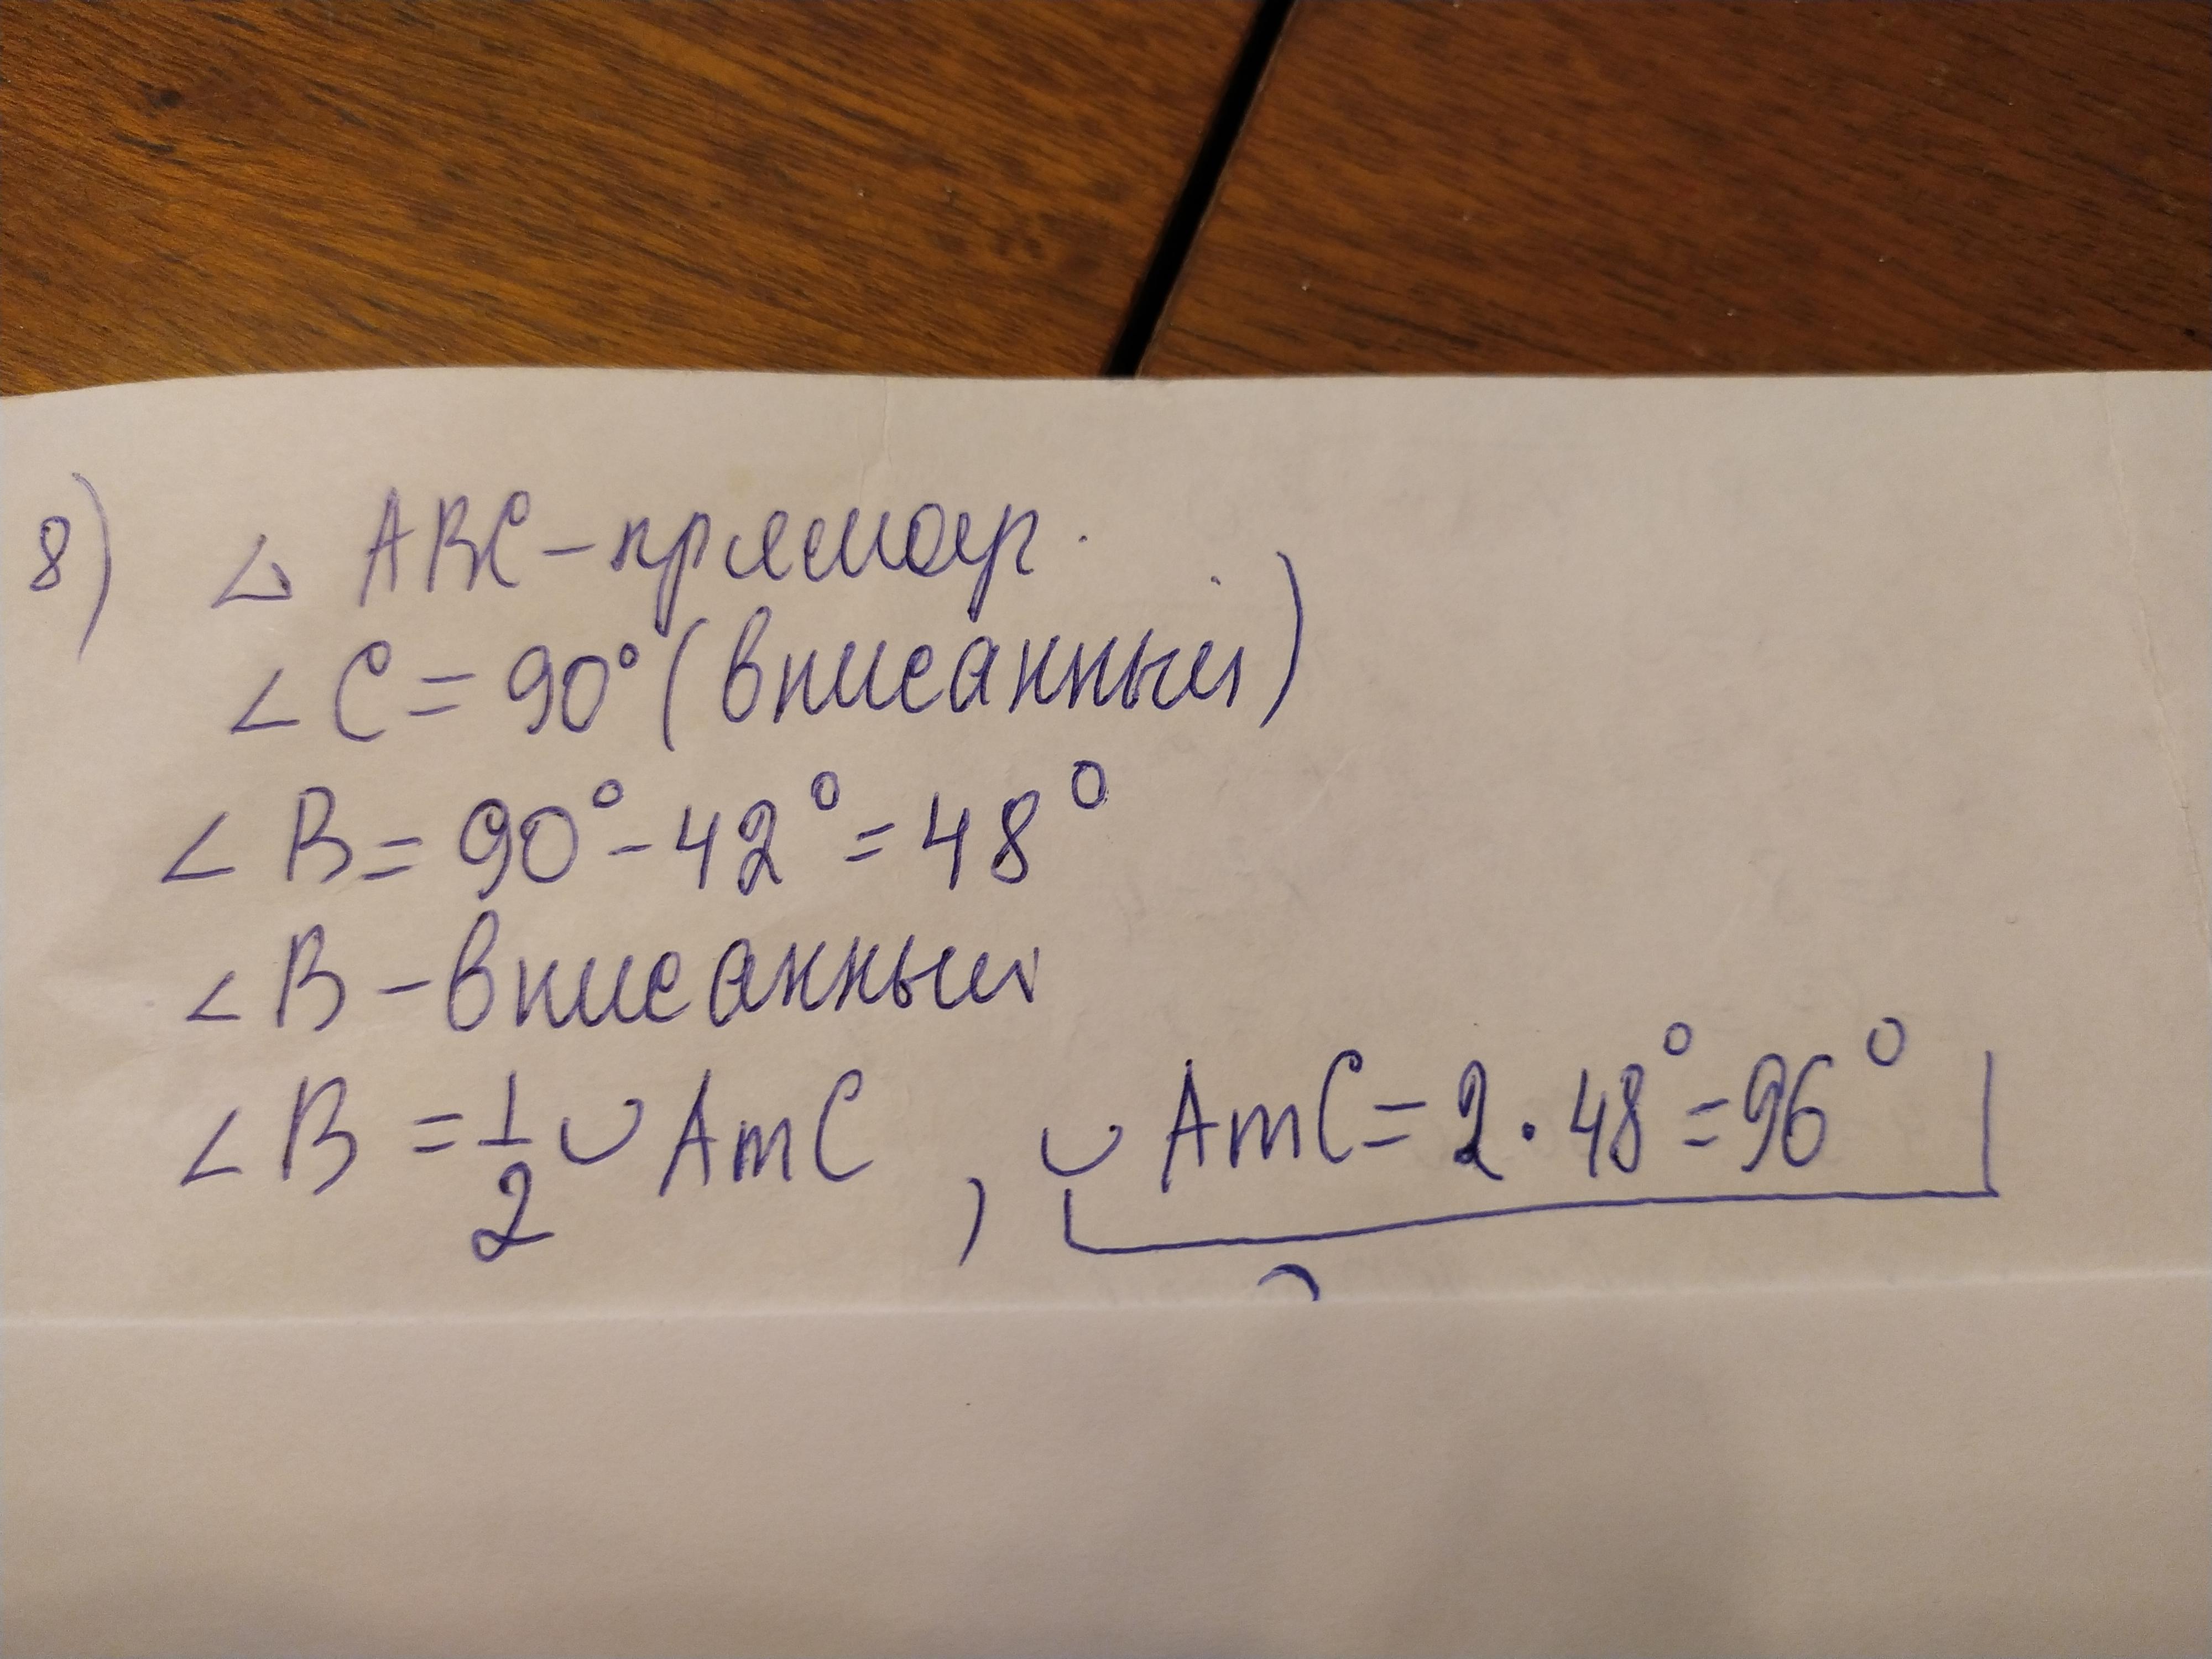 8) △ ABC – прямоуг.
∠ C = 90° (вписанный)
∠ B = 90° - 42° = 48°
∠ B – вписанный
∠ B = 1/2 ◡ AmC , ◡ AmC = 2 · 48° = 96°